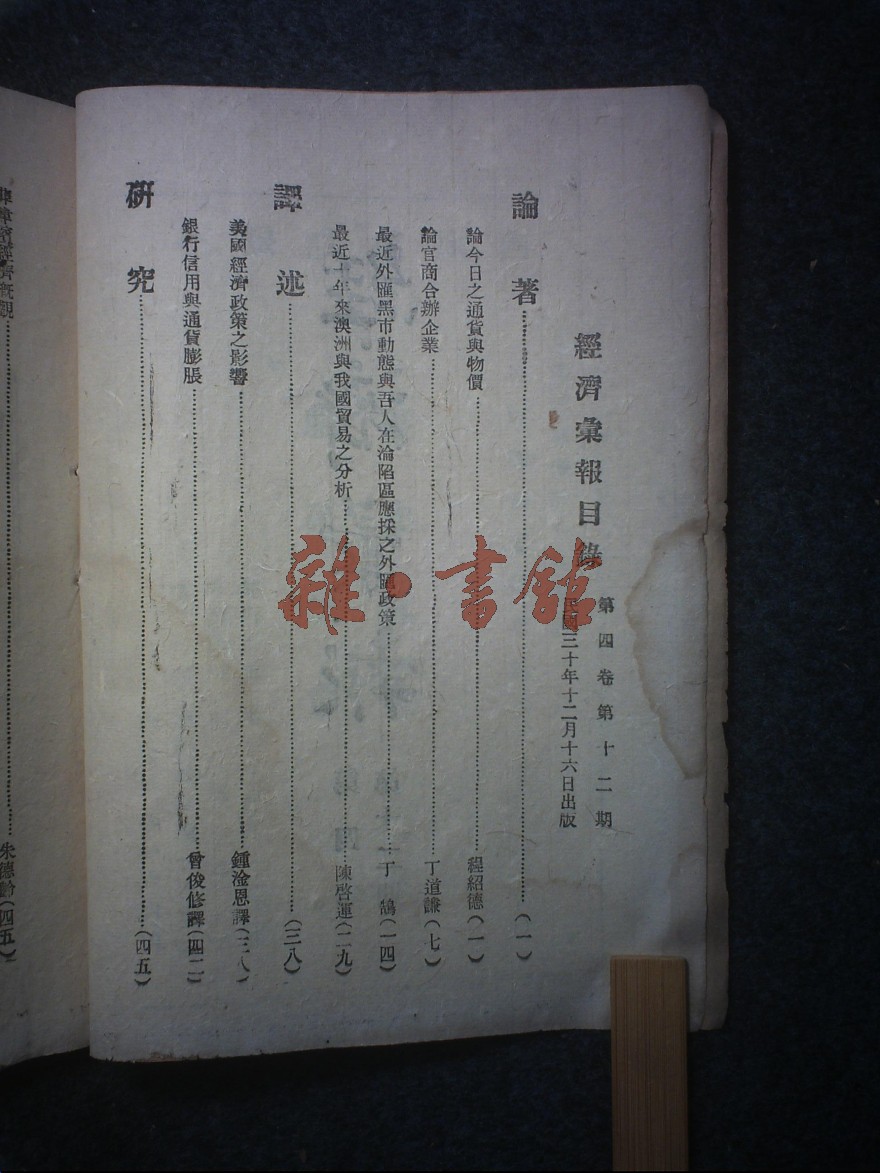 經濟彙報目錄
第四卷第十二期
民國三十年十二月十六日出版
論著……(一)
論今日之通貨與物價……程紹德(一)
論官商合辦企業……丁道謙(七)
最近外匯黑市動態與吾人在淪陷區應採之外匯政策……于鵠(一四)
最近十年來澳洲與我國貿易之分析……陳啓運(二九)
譯述……(三八)
美國經濟政策之影響……鍾淦恩譯(三八)
銀行信用與通貨膨脹……曾俊修譯(四二)
研究……(四五)
經濟概觀……朱德齡(四五)
雜·書館